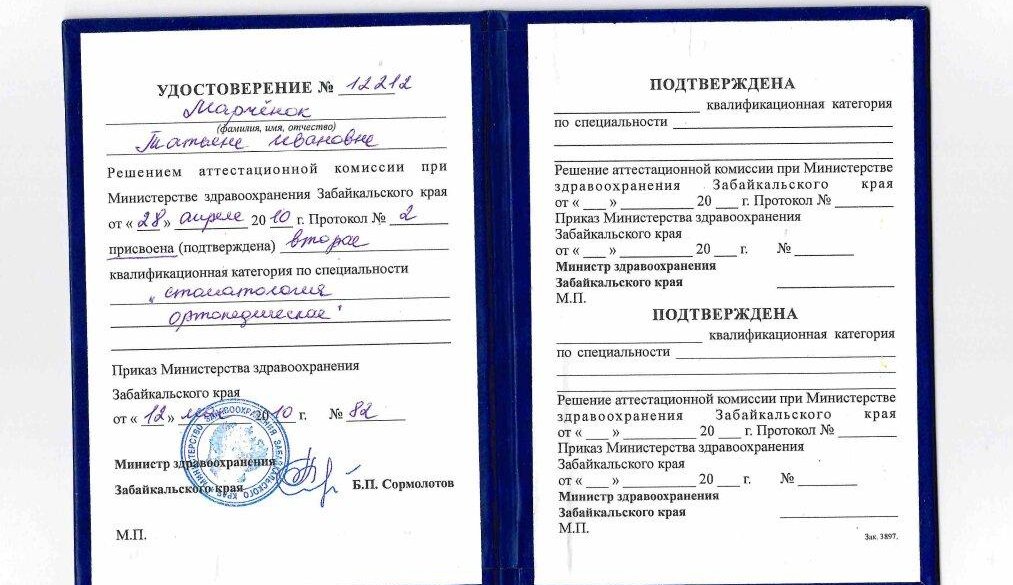 УДОСТОВЕРЕНИЕ № 12212
Марчёнок
(фамилия, имя, отчество)
Татьяне Ивановне
Решением аттестационной комиссии при
Министерстве здравоохранения Забайкальского края
от « 28 » апреля 20 10 г. Протокол № 2
присвоена (подтверждена) вторая
квалификационная категория по специальности
„стоматология
ортопедическая"
Приказ Министерства здравоохранения
Забайкальского края
от « 12 » мая 20 10 г. № 82
МИНИСТЕРСТВО ЗДРАВООХРАНЕНИЯ ЗАБАЙКАЛЬСКОГО КРАЯ
Министр здравоохранения
Забайкальского края Б.П. Сормолотов
М.П.
ПОДТВЕРЖДЕНА
____ квалификационная категория
по специальности ____
Решение аттестационной комиссии при Министерстве
здравоохранения Забайкальского края
от « ___ » ____ 20 ___ г. Протокол № ____
Приказ Министерства здравоохранения
Забайкальского края
от « ___ » ____ 20 ___ г. № ____
Министр здравоохранения
Забайкальского края ____
М.П.
ПОДТВЕРЖДЕНА
____ квалификационная категория
по специальности ____
Решение аттестационной комиссии при Министерстве
здравоохранения Забайкальского края
от « ___ » ____ 20 ___ г. Протокол № ____
Приказ Министерства здравоохранения
Забайкальского края
от « ___ » ____ 20 ___ г. № ____
Министр здравоохранения
Забайкальского края ____
М.П.
Зак. 3897.